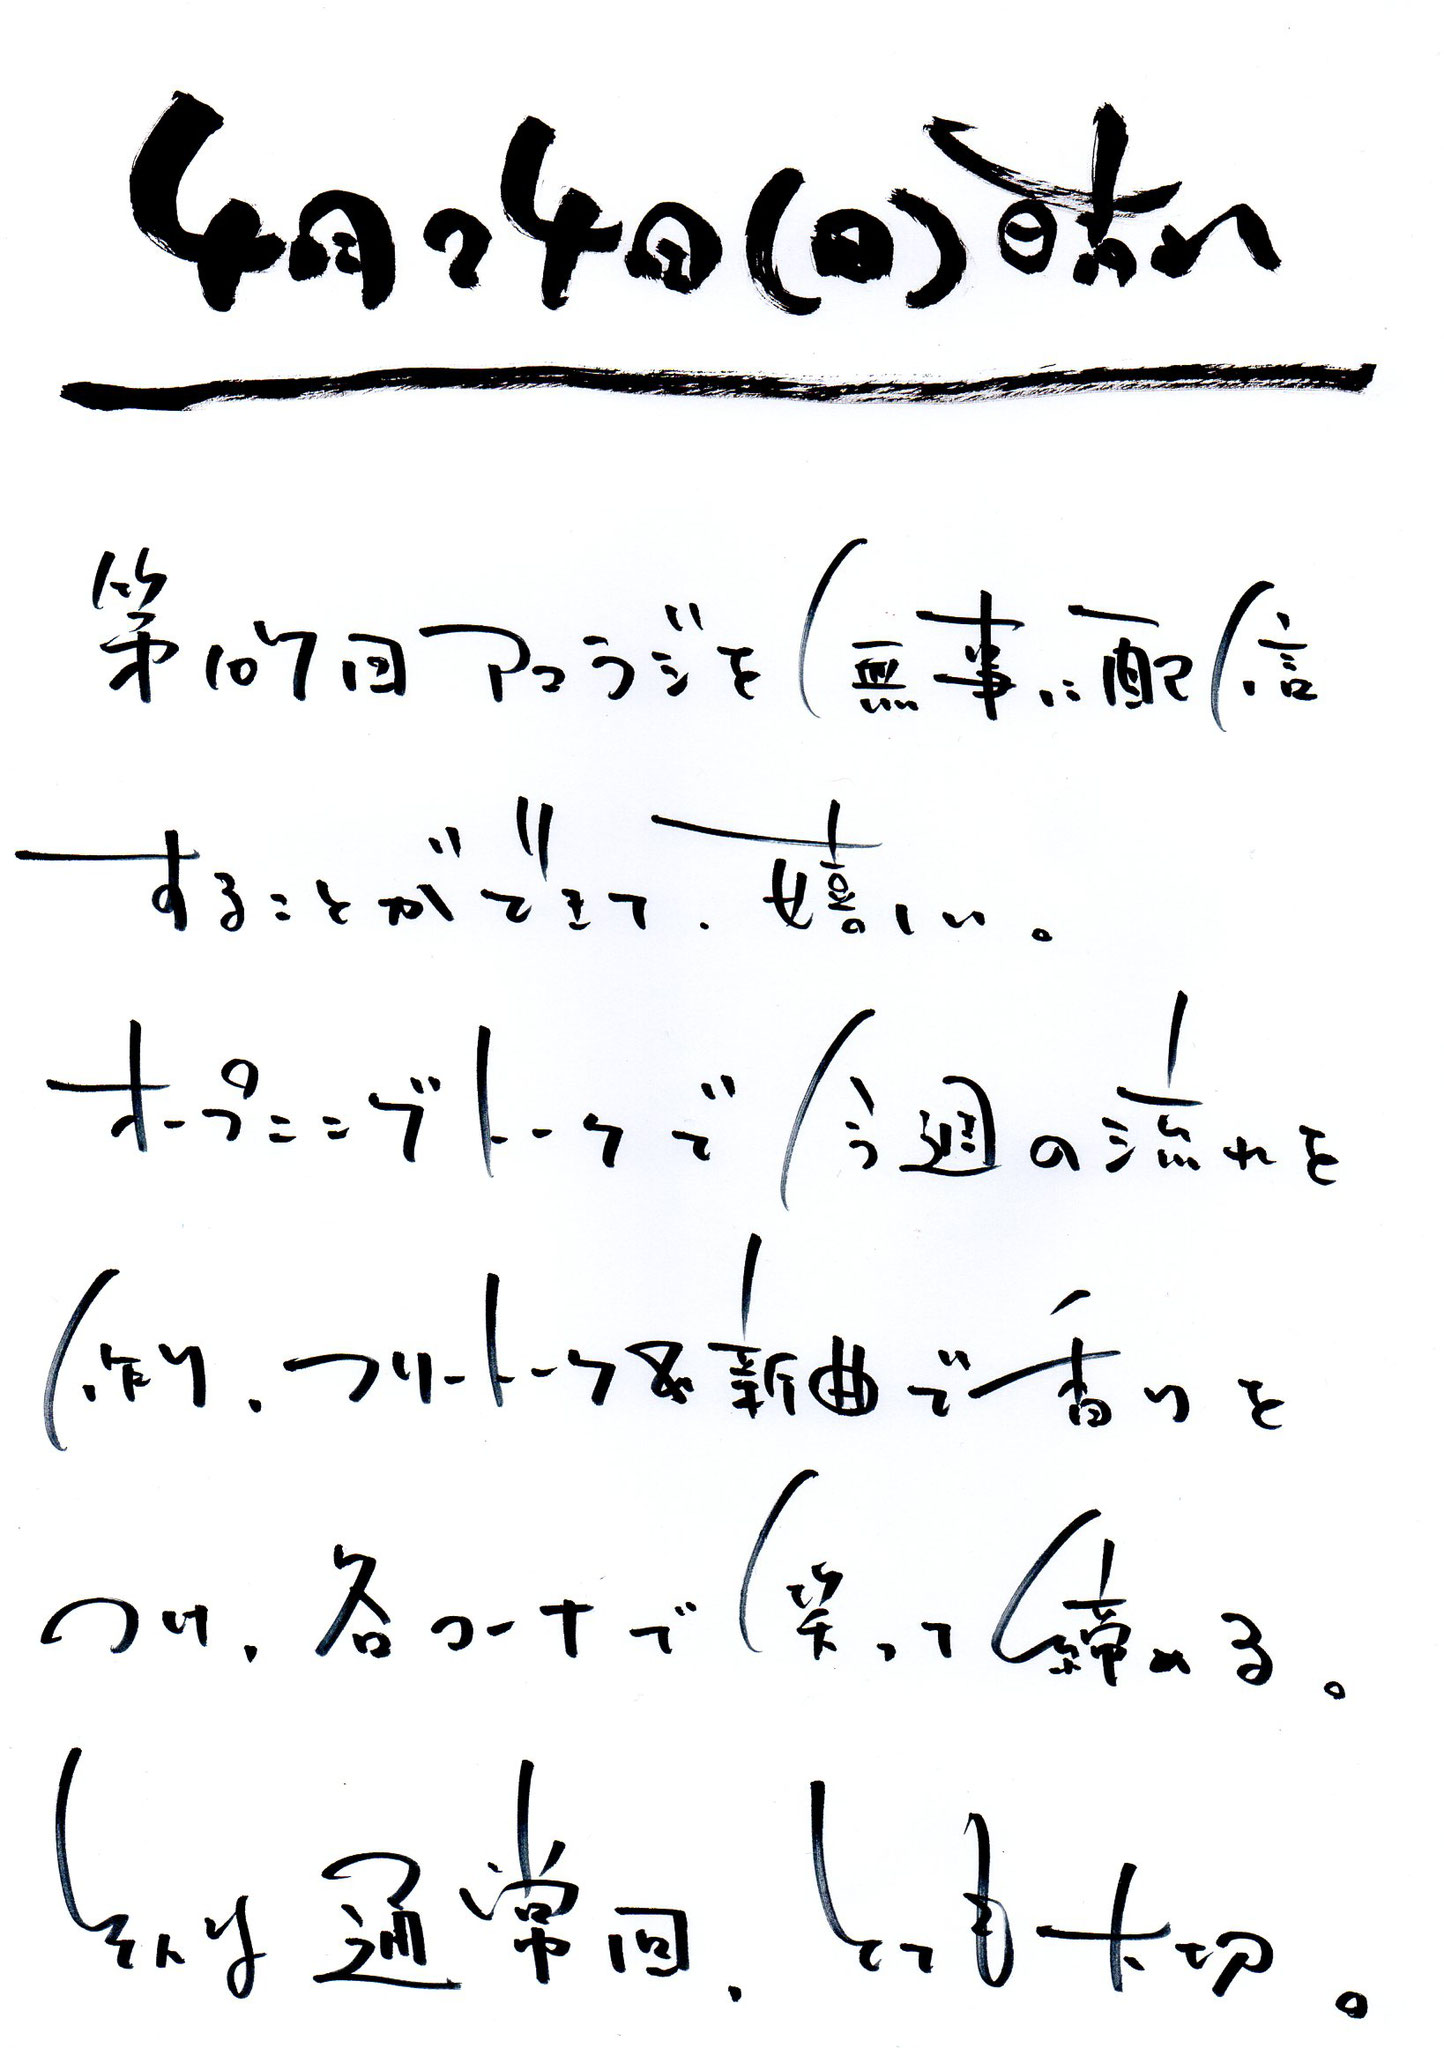 4月24日(日)晴れ
第107回アコラジを無事に配信
することができて、嬉しい。
オープニングトークで今週の流れを
作り、フリートーク&新曲で香りを
つけ、各コーナーで笑って締める。
そんな通常回、とても大切。